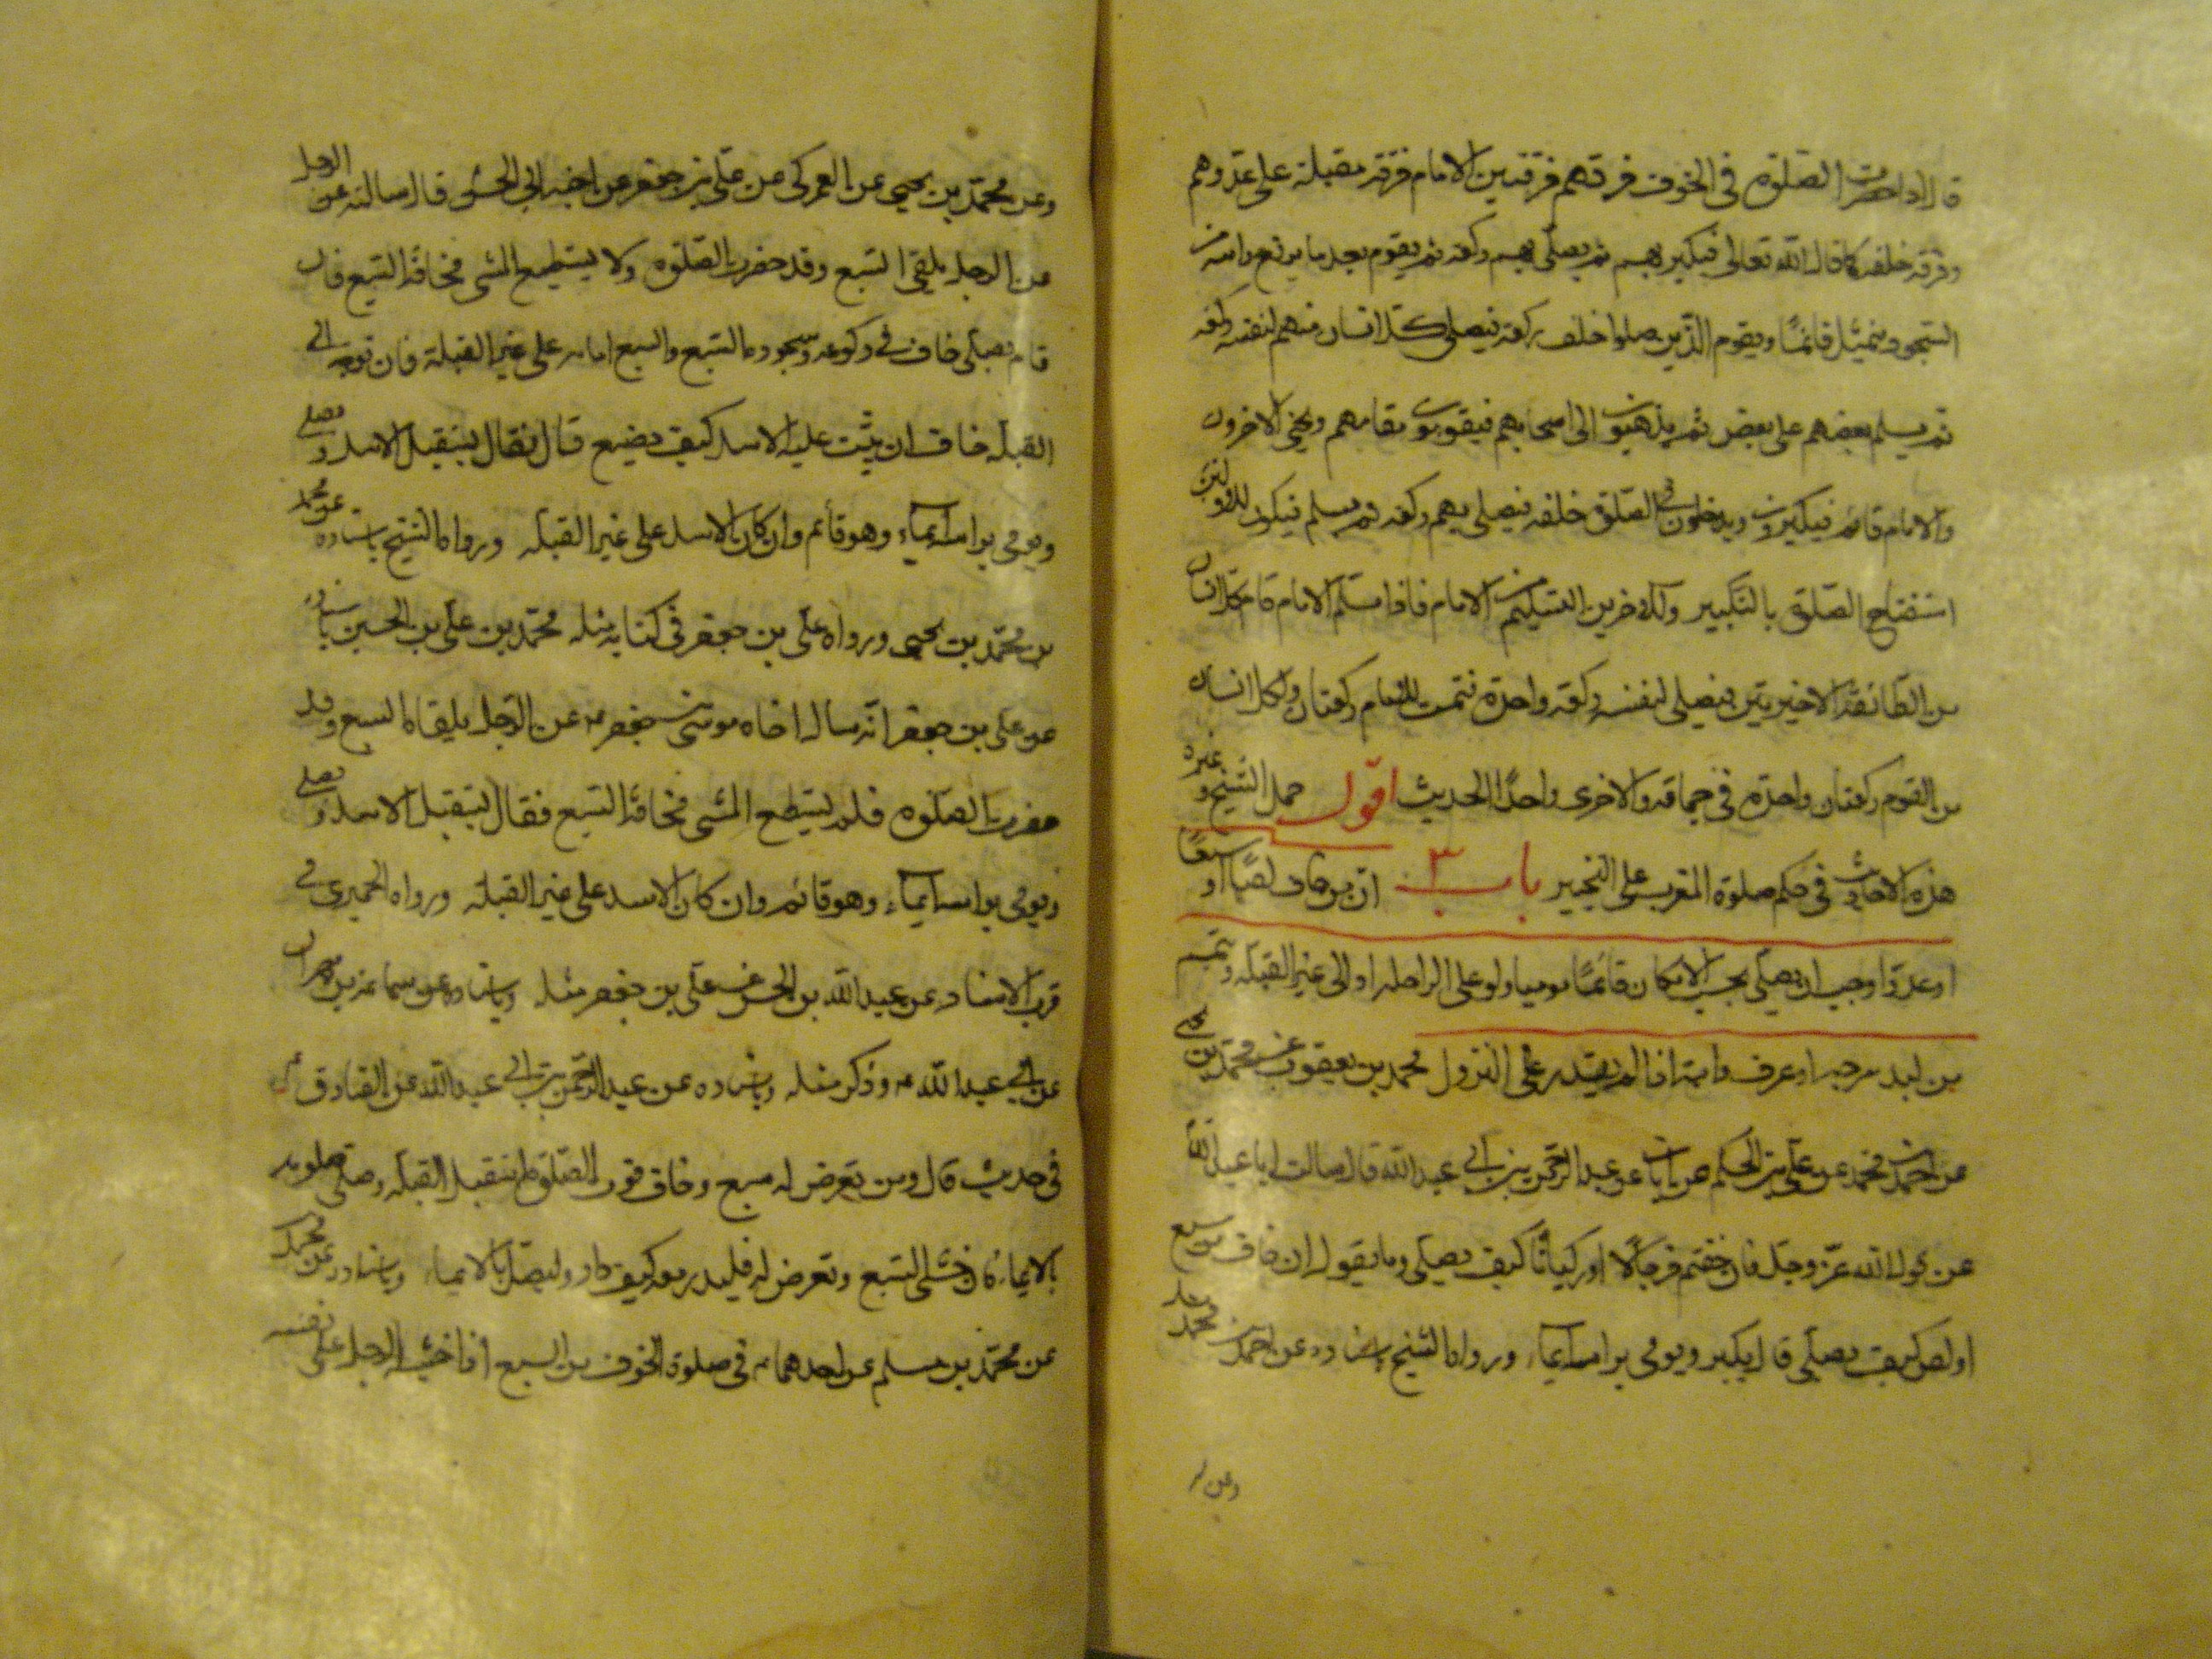 قال اذا حضرت الصلوة في الخوف فرقهم فرقتين الامام فرقة مقبلة على عدوهم
وفرقة خلفه كما قال الله تعالى فيكبر بهم ثم يصلي بهم ركعة ثم يقوم بعد ما يرفع راسه من
السجود فيتمثل قائما ويقوم الذين صلوا خلف ركعة فيصلي كل انسان منهم لنفسه ركعة
ثم يسلم بعضهم على بعض ثم يذهبون الى اصحابهم فيقومون مقامهم ويجئ الاخرون
والامام قائم فيكبرون ويدخلون في الصلوة خلفه فيصلي بهم ركعة ثم يسلم فيكون للاولين
استفتاح الصلوة بالتكبير وللاخرين التسليم من الامام فاذا سلم الامام قام كل انسان
من الطائفة الاخيرتين فيصلي لنفسه ركعة واحدة فتمت للامام ركعتان ولكل انسان
من القوم ركعتان واحدة في جماعة والاخرى واحدا الحديث اقول حمل الشيخ وغيره
هذه الاحاديث في حكم صلوة المغرب على التخيير باب ٣ ان من خاف لصا او سبعا
او عدوا وجب ان يصلي بحسب الامكان قائما موميا ولو على الراحلة او الى غير القبلة ويتيمم
من لبد سرجه او عرف دابته اذا لم يقدر على النزول محمد بن يعقوب عن محمد بن يحيى
عن احمد بن محمد عن علي بن الحكم عن ابان عن عبد الرحمن بن ابي عبد الله قال سالت ابا عبد الله
عن قول الله عز وجل فان خفتم فرجالا او ركبانا كيف يصلي وما يقول ان خاف من سبع
او لص كيف يصلي قال يكبر ويومى براسه ايماء ورواه الشيخ باسناده عن احمد بن محمد مثله
وعن
وعن محمد بن يحيى عن العمركي عن علي بن جعفر عن اخيه ابي الحسن قال سالته عن الرجل
عن الرجل يلقى السبع وقد حضرت الصلوة ولا يستطيع المشي مخافة السبع فان
قام يصلي خاف في ركوعه وسجوده السبع والسبع امامه على غير القبلة فان توجه الى
القبلة خاف ان يثب عليه الاسد كيف يصنع قال فقال يستقبل الاسد ويصلي
ويومى براسه ايماء وهو قائم وان كان الاسد على غير القبلة ورواه الشيخ باسناده عن محمد
بن محمد بن يحيى ورواه علي بن جعفر في كتابه مثله محمد بن علي بن الحسين باسناده
عن علي بن جعفر انه سال اخاه موسى بن جعفر عن الرجل يلقاه السبع وقد
حضرت الصلوة فلم يستطع المشي مخافة السبع فقال يستقبل الاسد ويصلي
ويومى براسه ايماء وهو قائم وان كان الاسد على غير القبلة ورواه الحميري في
قرب الاسناد عن عبد الله بن الحسن عن علي بن جعفر مثله وباسناده عن سماعة بن مهران
عن ابي عبد الله وذكر مثله وباسناده عن عبد الرحمن بن ابي عبد الله عن الصادق
في حديث قال ومن تعرض له سبع وخاف فوت الصلوة استقبل القبلة وصلى صلوته
بالايماء فان خشى السبع وتعرض له فليدر معه كيف دار وليصل بالايماء وباسناده عن محمد
عن محمد بن مسلم عن احدهما في صلوة الخوف من السبع اذا خشيه الرجل على نفسه